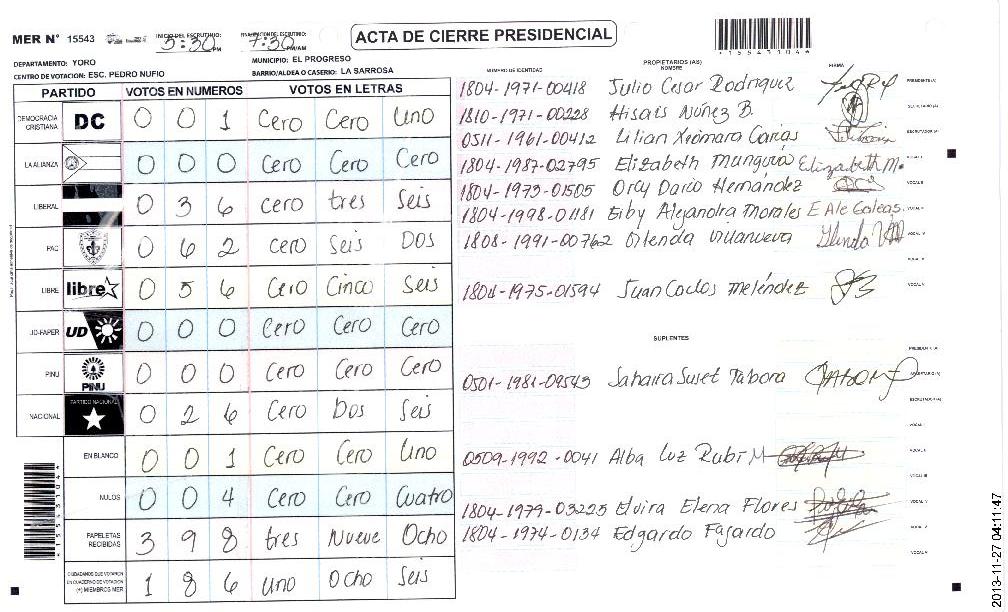 MER N° 15543
INICIO DEL ESCRUTINIO: 5:30 PM
FINALIZACION DEL ESCRUTINIO: 7:30 PM/AM
ACTA DE CIERRE PRESIDENCIAL
15543104
DEPARTAMENTO: YORO
MUNICIPIO: EL PROGRESO
CENTRO DE VOTACION: ESC. PEDRO NUFIO
BARRIO/ALDEA O CASERIO: LA SARROSA
PARTIDO VOTOS EN NUMEROS VOTOS EN LETRAS
DEMOCRACIA CRISTIANA DC 0 0 1 Cero Cero Uno
LA ALIANZA 0 0 0 Cero Cero Cero
LIBERAL 0 3 6 Cero tres Seis
PAC 0 6 2 Cero Seis Dos
LIBRE libre 0 5 6 Cero Cinco Seis
UD-FAPER UD 0 0 0 Cero Cero Cero
PINU PINU 0 0 0 Cero Cero Cero
NACIONAL PARTIDO NACIONAL 0 2 6 Cero Dos Seis
EN BLANCO 0 0 1 Cero Cero Uno
NULOS 0 0 4 Cero Cero Cuatro
PAPELETAS RECIBIDAS 3 9 8 tres Nueve Ocho
CIUDADANOS QUE VOTARON EN CUADERNO DE VOTACION (+) MIEMBROS MER 1 8 6 Uno Ocho Seis
15543104
NUMERO DE IDENTIDAD PROPIETARIOS (AS) NOMBRE FIRMA
1804-1971-00418 Julio Cesar Rodriguez PRESIDENTE(A)
1810-1971-00228 Hisais Núñez B. SECRETARIO(A)
0511-1961-00412 Lilian Xiomara Carias ESCRUTADOR(A)
1804-1987-02795 Elizabeth Munguia Elizabeth M. VOCAL I
1804-1973-01505 Orcy Dario Hernández VOCAL II
1804-1998-01181 Eiby Alejandra Morales E Ale Galeas. VOCAL III
1808-1991-00762 Orlenda Villanueva VOCAL IV
VOCAL V
1804-1975-01594 Juan Carlos Meléndez
SUPLENTES
PRESIDENTE(A)
0501-1981-09543 Sahaira Suset Tabora SECRETARIO(A)
ESCRUTADOR(A)
VOCAL I
0509-1992-0041 Alba Luz Rubi M VOCAL II
VOCAL III
1804-1979-03225 Elvira Elena Flores VOCAL IV
1804-1974-0134 Edgardo Fajardo VOCAL V
VOCAL VI
2013-11-27 04:11:47